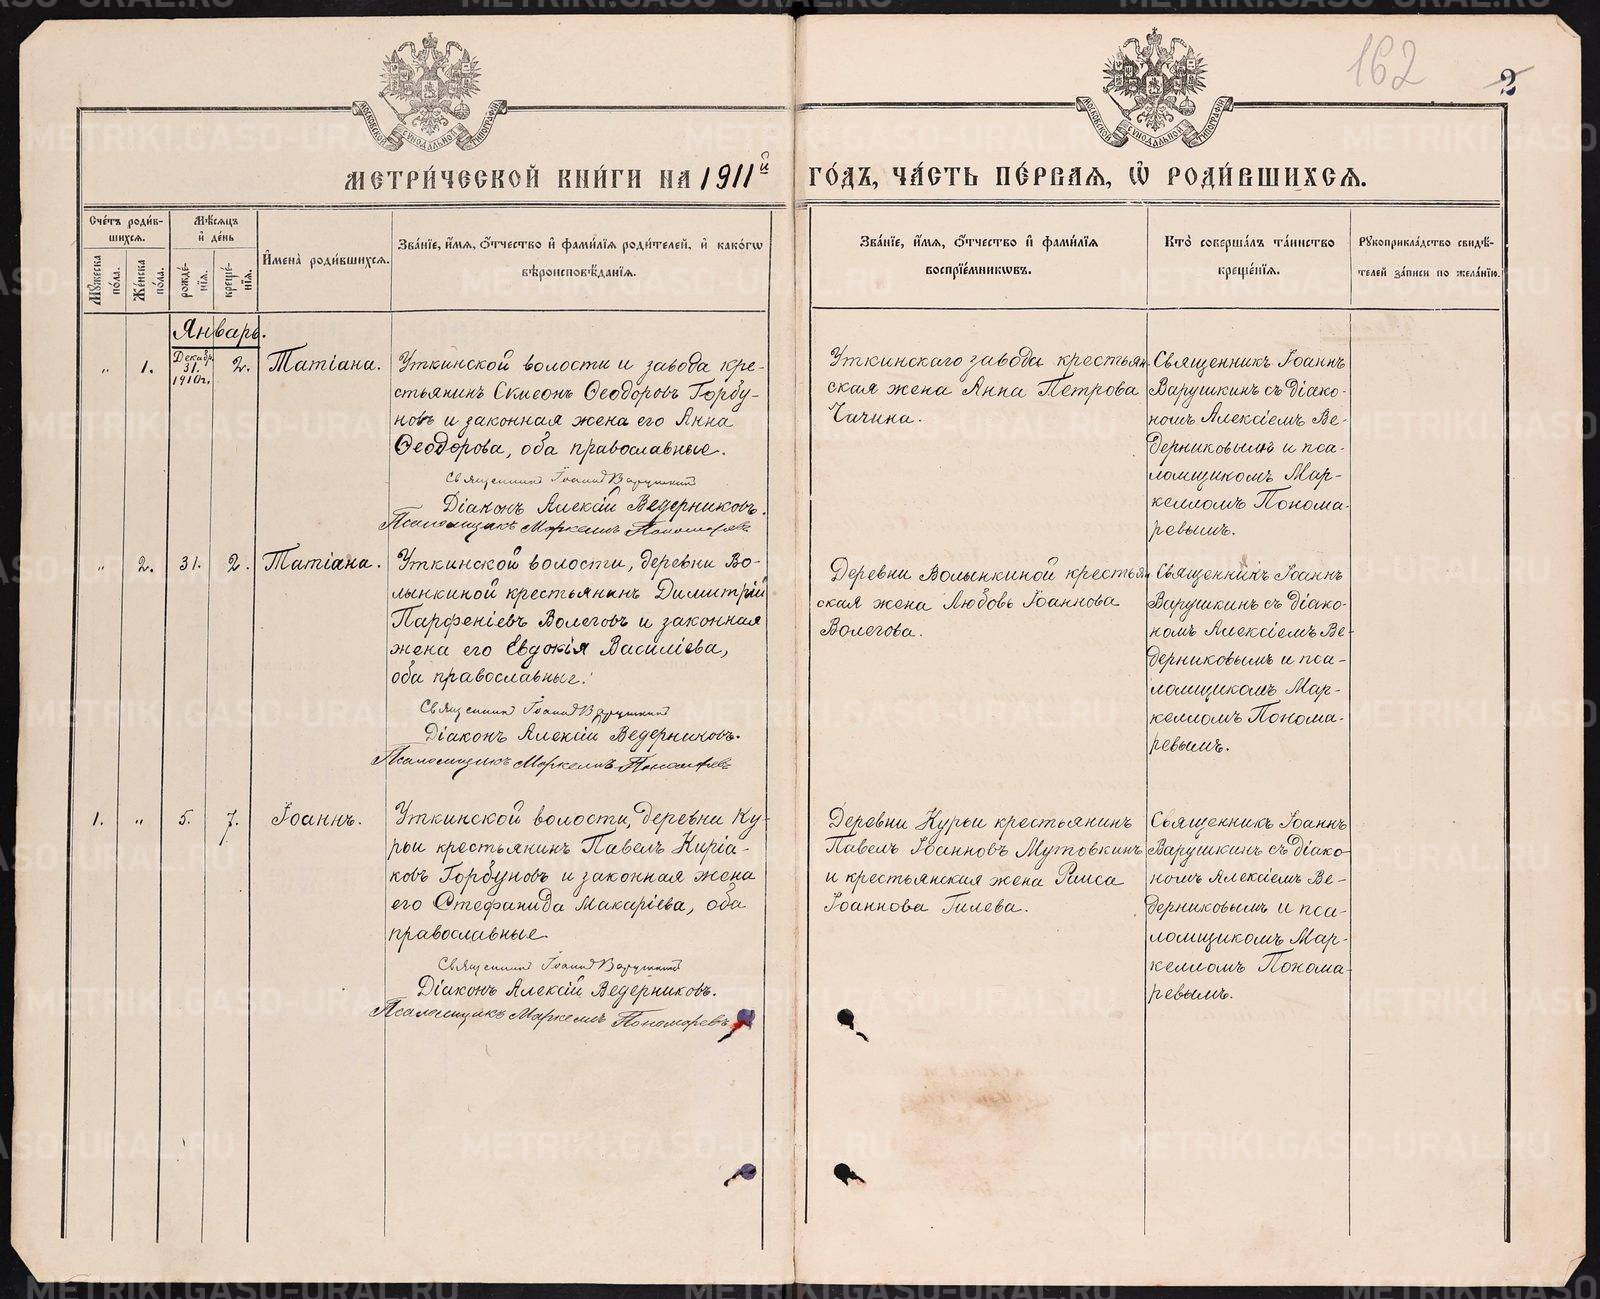 162
2
МОСКОВСКОЙ СѴНОДАЛЬНОЙ ТИПОГРАФІИ
МОСКОВСКОЙ СѴНОДАЛЬНОЙ ТИПОГРАФІИ
МЕТРИ́ЧЕСКОЙ КНИ́ГИ НА 1911й ГО́ДЪ, ЧА́СТЬ ПЕ́РВАѦ, Ѡ҆ РОДИ́ВШИХСѦ.
Сче́тъ роди́в-
шихсѧ.
Мꙋ́жеска по́ла.
Же́нска по́ла.
Мѣ́сѧцъ
и҆ де́нь
рожде́-
нїѧ.
креще́-
нїѧ.
И҆мена̀ роди́вшихсѧ.
Зва́нїе, и҆́мѧ, ѻ҆́тчество и҆ фами́лїѧ роди́телей, и҆ како́гѡ
вѣроисповѣ́данїѧ.
Зва́нїе, и҆́мѧ, ѻ҆́тчество и҆ фами́лїѧ
воспрїе́мникѡвъ.
Кто̀ соверша́лъ та́инство
креще́нїѧ.
Рꙋкоприкла́дство свидѣ́-
телей за́писи по жела́нїю.
Январь.
„ 1. Декабр. 31. 1910г. 2. Татіана.
Уткинской волости и завода кре-
стьянинъ Симеонъ Ѳеодоровъ Горбу-
новъ и законная жена его Анна
Ѳеодорова, оба православные.
Священникъ Іоаннъ Варушкинъ
Діаконъ Алексій Ведерниковъ.
Псаломщикъ Маркеллъ Пономаревъ
Уткинскаго завода крестьян-
ская жена Анна Петрова
Чачина.
Священникъ Іоаннъ
Варушкинъ съ діако-
номъ Алексіемъ Ве-
дерниковымъ и пса-
ломщикомъ Мар-
келломъ Понома-
ревымъ.
„ 2. 31. 2. Татіана.
Уткинской волости, деревни Во-
лынкиной крестьянинъ Димитрій
Парфеніевъ Волеговъ и законная
жена его Евдокія Василіева,
оба православные.
Священникъ Іоаннъ Варушкинъ
Діаконъ Алексій Ведерниковъ.
Псаломщикъ Маркеллъ Пономаревъ
Деревни Волынкиной крестьян-
ская жена Любовь Іоаннова
Волегова.
Священникъ Іоаннъ
Варушкинъ съ діако-
номъ Алексіемъ Ве-
дерниковымъ и пса-
ломщикомъ Мар-
келломъ Понома-
ревымъ.
1. „ 5. 7. Іоаннъ.
Уткинской волости, деревни Ку-
рьи крестьянинъ Павелъ Киріа-
ковъ Горбуновъ и законная жена
его Стефанида Макаріева, оба
православные.
Священникъ Іоаннъ Варушкинъ
Діаконъ Алексій Ведерниковъ.
Псаломщикъ Маркеллъ Пономаревъ
Деревни Курьи крестьянинъ
Павелъ Іоанновъ Мутовкинъ
и крестьянская жена Раиса
Іоаннова Гилева.
Священникъ Іоаннъ
Варушкинъ съ діако-
номъ Алексіемъ Ве-
дерниковымъ и пса-
ломщикомъ Мар-
келломъ Понома-
ревымъ.
METRIKI.GASO-URAL.RU